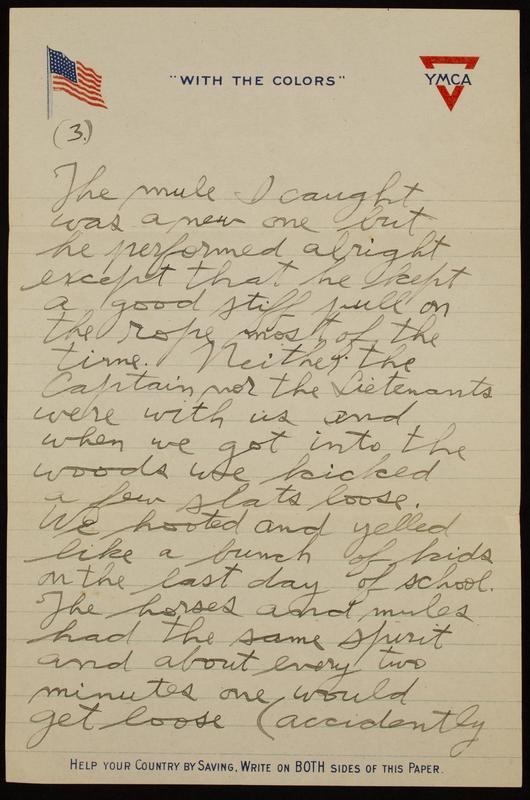 "WITH THE COLORS"
YMCA
(3.)
The mule I caught
was a new one but
he performed alright
except that he kept
a good stiff pull on
the rope most of the
time. Neither the
Captain nor the Lietenants
were with us and
when we got into the
woods we kicked
a few slats loose.
We hooted and yelled
like a bunch of kids
on the last day of school.
The horses and mules
had the same spirit
and about every two
minutes one would
get loose (accidently
HELP YOUR COUNTRY BY SAVING. WRITE ON BOTH SIDES OF THIS PAPER.